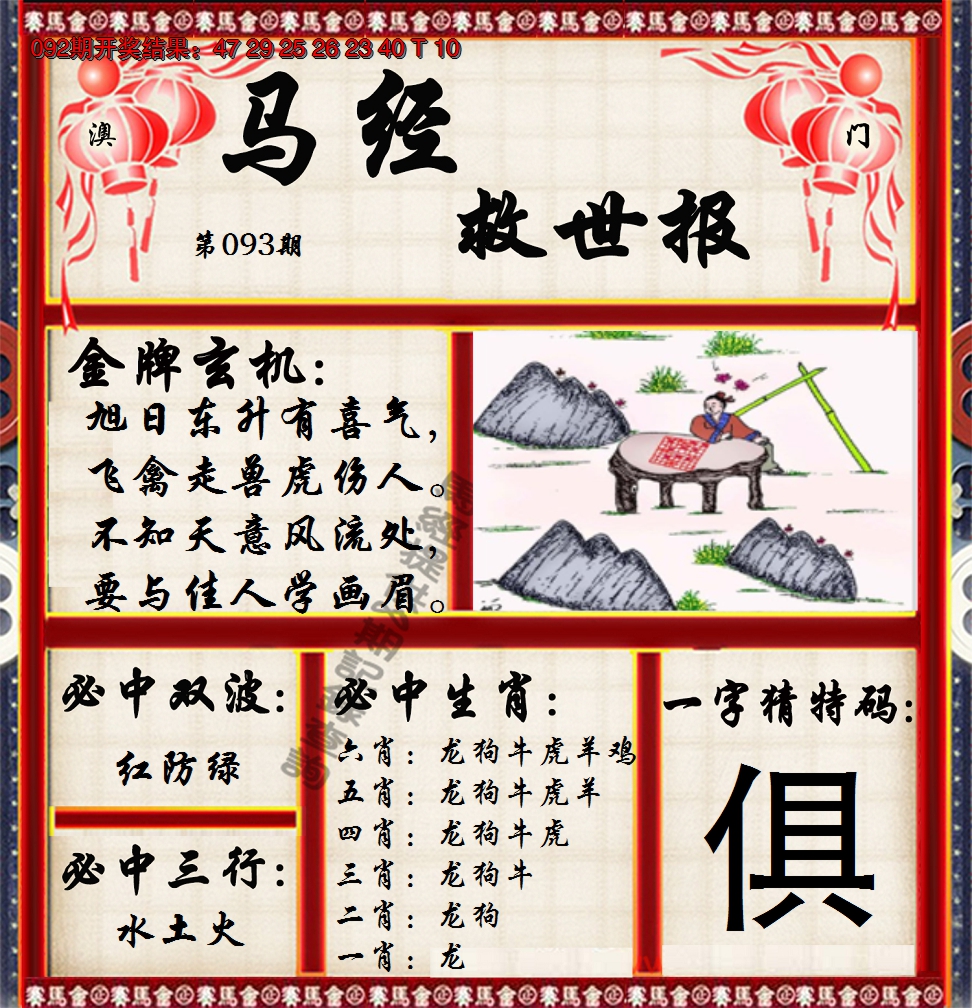 092期开奖结果：47 29 25 26 23 40 T 10
澳 门
马经
救世报
第093期
金牌玄机：
旭日东升有喜气，
飞禽走兽虎伤人。
不知天意风流处，
要与佳人学画眉。
必中双波：
红防绿
必中三行：
水土火
必中生肖：
六肖：龙狗牛虎羊鸡
五肖：龙狗牛虎羊
四肖：龙狗牛虎
三肖：龙狗牛
二肖：龙狗
一肖：龙
一字猜特码：
俱